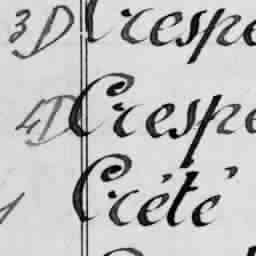 3D Crespe
4D Crespe
Crété